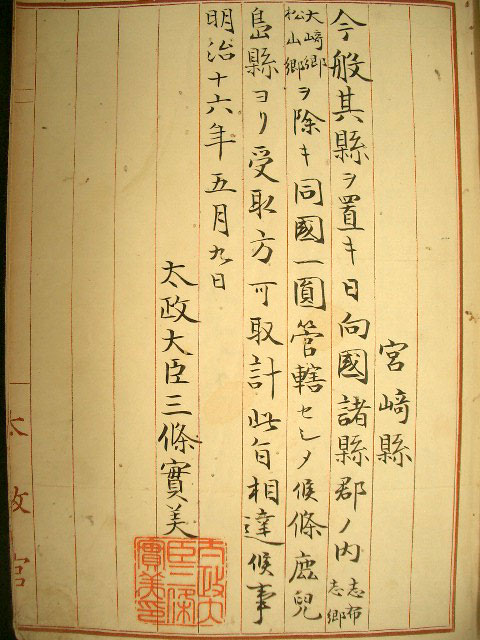 宮﨑縣
今般其縣ヲ置キ日向國諸縣郡ノ内志布志郷
大﨑郷松山郷ヲ除キ同國一圓管轄セシメ候條鹿兒
島縣ヨリ受取方可取計此旨相達候事
明治十六年五月九日
太政大臣三條實美
太政大臣三條實美印
太政官